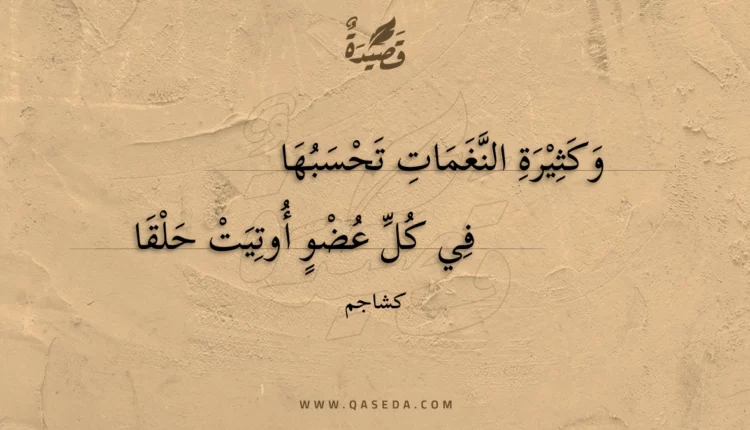 قَصِيدَةٌ
وَكَثِيْرَةِ النَّغَمَاتِ تَحْسَبُهَا
فِي كُلِّ عُضْوٍ أُوتِيَتْ حَلْقَا
كشاجم
WWW.QASEDA.COM